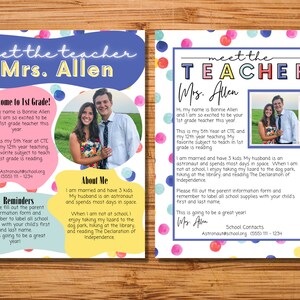 meet the teacher
Mrs. Allen
come to 1st Grade!
name is Bonnie Allen
I am so excited to be
1st grade teacher this
year
is my 5th Year at CTE
my 12th year teaching.
favorite subject to teach
1st grade is reading.
Astronaut@school.org
(555) 111 - 1234
About Me
I am married and have 3 kids.
My husband is an astronaut and
spends most days in space.
When I am not at school, I
enjoy taking my lizard to the
dog park, hiking at the library,
and reading the Declaration of
Independence.
Reminders
fill out the parent
information form and
remember to label all
school supplies with
your child's first and last
name.
is going to be a great
year!
meet the
TEACHER
Mrs. Allen
Hi, my name is Bonnie Allen
and I am so excited to be
your 1st grade teacher this
year!
This is my 5th Year at CTE and
my 12th year teaching. My
favorite subject to teach in
1st grade is reading.
I am married and have 3 kids. My husband is an
astronaut and spends most days in space. When I am
not at school, I enjoy taking my lizard to the dog
park, hiking at the library, and reading the
Declaration of Independence.
Please fill out the parent information form and
remember to label all school supplies with your child's
first and last name.
This is going to be a great year!
Mrs. Allen
School Contacts
Astronaut@school.org (555) 111 - 1234